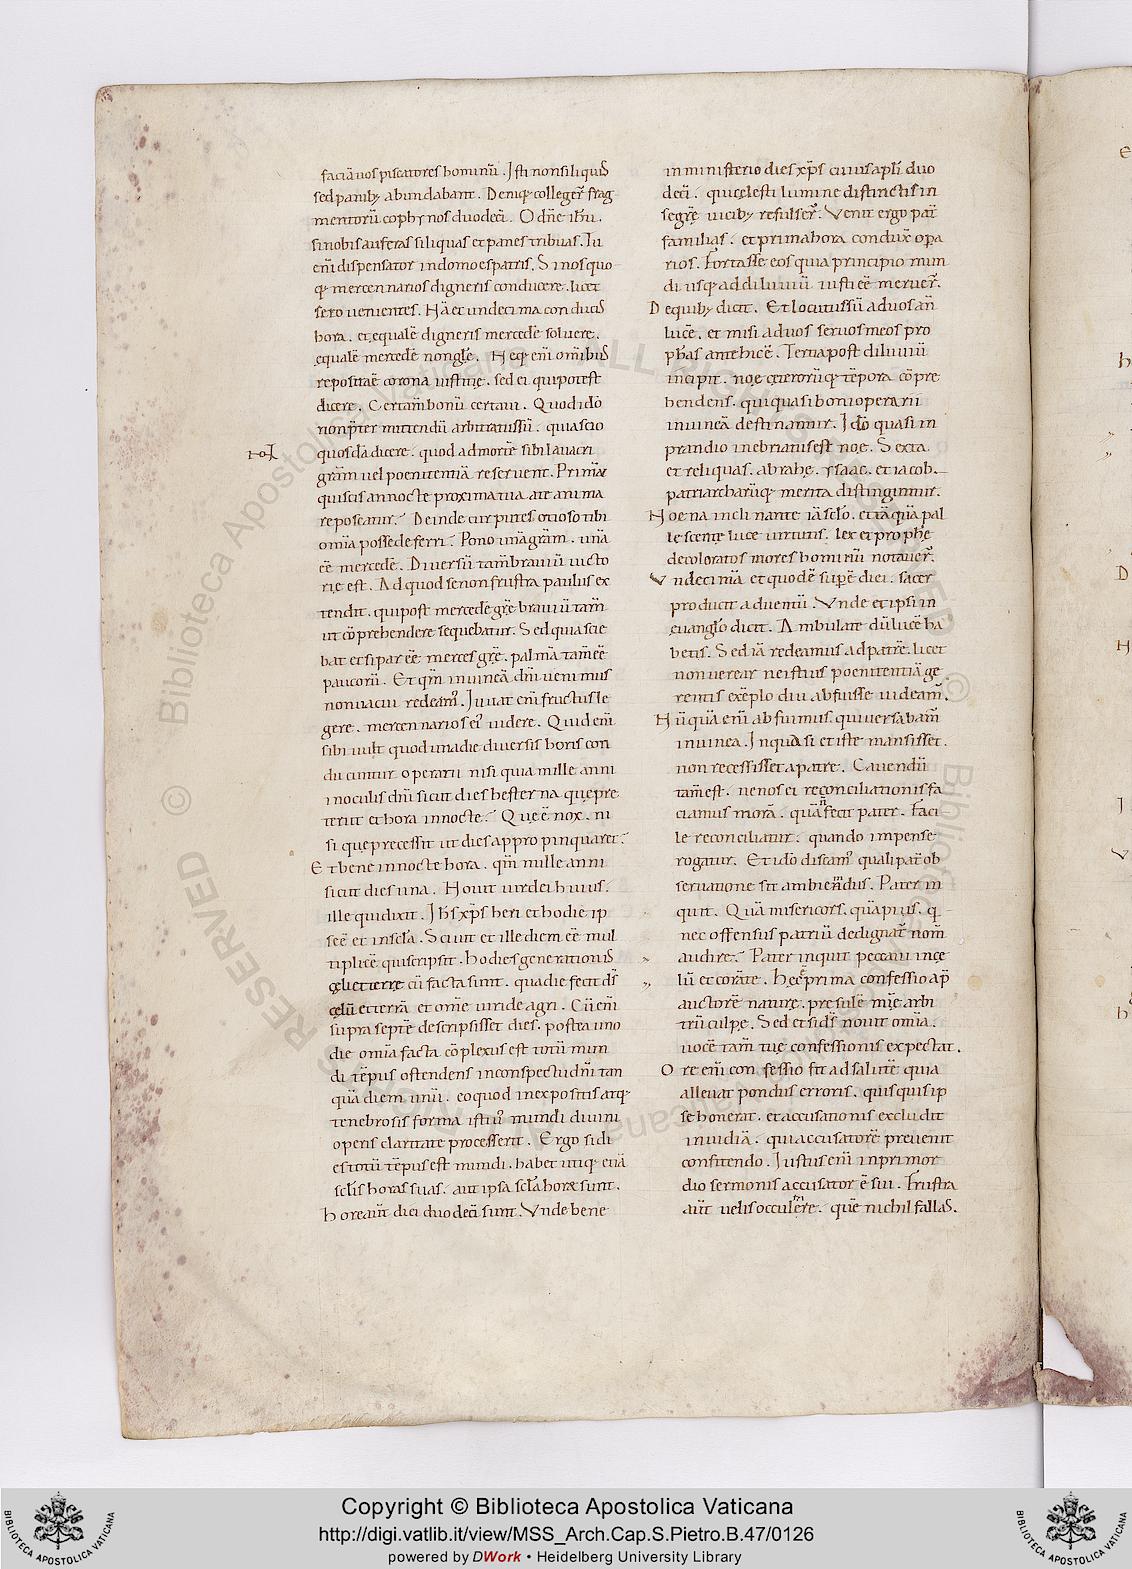 faciā uos piscatores hominū. Isti non siliquis
sed panibȝ abundabant. Deniqȝ collegeɼ̄ frag
mentorū cophynos duodeci͞. O dn̄e ihu͞.
si nobis auferas siliquas et panes tribuas. Tu
eni͞ dispensator in domo es patris. Si nos quo
qȝ mercennarios digneris conducere. licet
sero uenientes. Hā et undecima conducis
hora. et equalē digneris mercedē soluere.
equalē mercedē
reposita ē corona iustitię. sed ei qui potest
dicere. Certam̄ bonū certaui. Quod ido͞
non p̄ter mittendū arbitratus sū. quia scio
quosdā dicere. quod ad mortē sibi lauacri
gr̄am uel poenitentiā reseruent. Primū
qui scis an nocte proxima tua a te anima
reposcatur? Deinde cur putes otioso tibi
om̄ia possę deferri? Pono unā gr̄am. unā
eē mercedē. Diuersū tam̄ brauiū uicto
rię est. Ad quod se non frustra paulus ex
tendit. qui post mercedē gr̄ę brauiū tam̄
ut cōprehendere sequebatur. Sed quia scie
bat etsi par eē merces gr̄ę. palmā tam̄ eē
paucorū. Et qm̄ in uineā dn̄i uenimus
non uacui redeam᷒. Iuuat eni͞ fructus le
gere. mercennarios ei᷒ uidere. Quid eni͞
sibi uult quod una die diuersis horis con
ducuntur operarii nisi quia mille anni
in oculis dn̄i sicut dies hesterna quę pre
teriit et hora in nocte? Quę ē nox. ni
si quę precessit ut dies appropinquaret?
Et bene in nocte hora. qm̄ mille anni
sicut dies una. Houit uir dei huius.
ille qui dixit. Ihs xp̄s heri et hodie ip
se ē et in sc̄la. Sciuit et ille diem eē mul
tiplicē qui scripsit. hodies generationis
cęli et terrę cū facta sunt. qua die fecit d͞s
cęlū et terrā et om̄e uiride agri. Cū eni͞
supra septē descripsisset dies. postea uno
die om̄ia facta cōplexus est totū mun
di tēpus ostendens in conspectu dn̄i tan
quā diem unū. eo quod inexpositis atqȝ
tenebrosis forma isti᷒ mundi diuini
operis claritate processerit. Ergo si di
es totū tēpus est mundi. habet utiqȝ etiā
sc̄lis horas suas. aut ipsa sc̄la horæ sunt.
Horę aut͞ diei duodeci͞ sunt. Vnde bene
in ministerio dies xp̄s cuius apl̄i duo
deci͞. qui cęlesti lumine distinctis in
se gr̄ę uicibȝ refulseɼ̄. Venit ergo pat͞
familias. et prima hora conduxit opera
rios. Fortasse eos qui a principio mun
di usqȝ ad diluuiū iusti eē merueɼ̄.
De quibȝ dicit. Et locutus sū ad uos an̄
lucē. et misi ad uos seruos meos pro
ph̄as ante lucē. Tertia post diluuiū
incipit. noę ceterorūqȝ tēpora cōpre
hendens. qui quasi boni operarii
in uineā destinantur. Ido͞ quasi in
prandio inebriatus est noę. Sexta
et reliquas. abrahę. ysaac. et iacob.
patriarcharūqȝ merita distinguntur.
Hoena inclinante iā sc̄lo. et iā quā pal
lescente luce uirtutis. lex et prophę
decoloratos mores hominū notaueɼ̄.
Vndecimā et quodē supē diei. sacer
producit aduentū. Vnde et ipsi in
euangl̄o dicit. Ambulate dū lucē ha
betis. Sed iā redeamus ad patrē. licet
non uerear ne istius poenitentiā ge
rentis exēplo diu abfuisse uideam᷒.
Hūquā eni͞ abfuimus. qui uersabam᷒
in uinea. In qua si et iste mansisset.
non recessisset a patre. Cauendū
tam̄ est. ne nos ei reconciliationis fa
ciamus morā. quā n̄ fecit pater. Faci
le reconciliatur. quando impense
rogatur. Et ido͞ discam᷒ quali pat͞ ob
seruatione sit ambiendus. Pater in
quit. Quā misericors. quā pius. q
nec offensus patriū dedignat͞ nom̄
audire? Pater inquit peccaui in cę
lū et corā te. Hęc ē prima confessio ap̄
auctorē naturę. presulē mi͞ę. arbi
trū culpę. Sed etsi d͞s nouit om̄ia.
uocē tam̄ tuę confessionis expectat.
Ore eni͞ confessio fit ad salutē quia
alleuat pondus erroris. quisquis ip
se honerat. et accusationis excludit
inuidiā. qui accusatorē preuenit
confitendo. Iustus eni͞ in primor
dio sermonis accusator ē sui. Frustra
aut͞ uelis occulere. quē nichil fallas.
Copyright © Biblioteca Apostolica Vaticana
http://digi.vatlib.it/view/MSS_Arch.Cap.S.Pietro.B.47/0126
powered by DWork • Heidelberg University Library